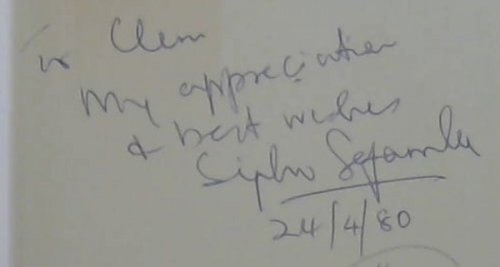 To Clem
My appreciation
& best wishes
Sipho Sepamla
24/4/80